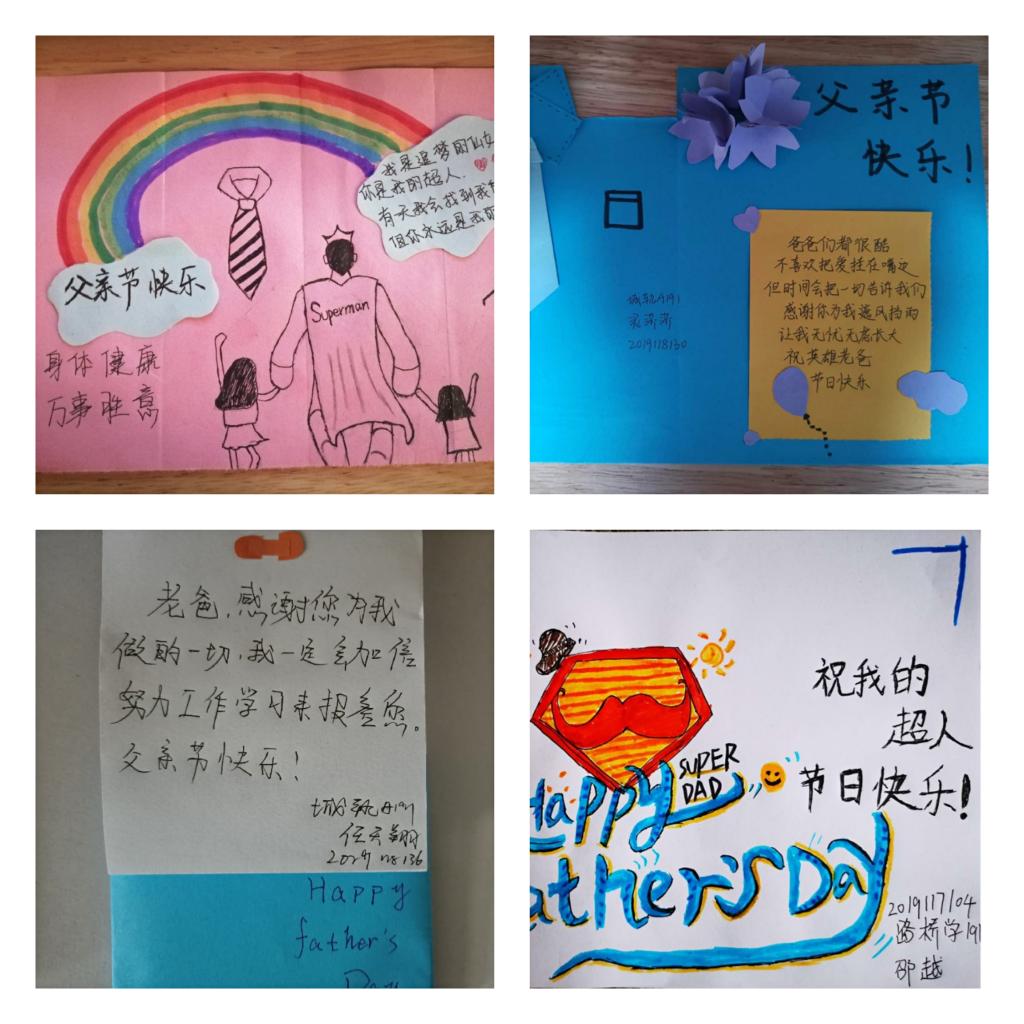 我是追梦的仙女
你是我的超人.
有天我会找到我的
但你永远是我的
父亲节快乐
Superman
身体健康
万事胜意
父亲节
快乐!
爸爸们都很酷
不喜欢把爱挂在嘴边
但时间会把一切告诉我们
感谢你为我遮风挡雨
让我无忧无虑长大
祝英雄老爸
节日快乐
城轨A191
2019118130
老爸,感谢您为我
做的一切,我一定会加倍
努力工作学习来报答您。
父亲节快乐!
城轨A191
任天翔
2019118136
Happy
father's
Day
祝我的
超人
节日快乐!
SUPER
DAD
Happy
ather's Day
2019117104
路桥学191
邵越